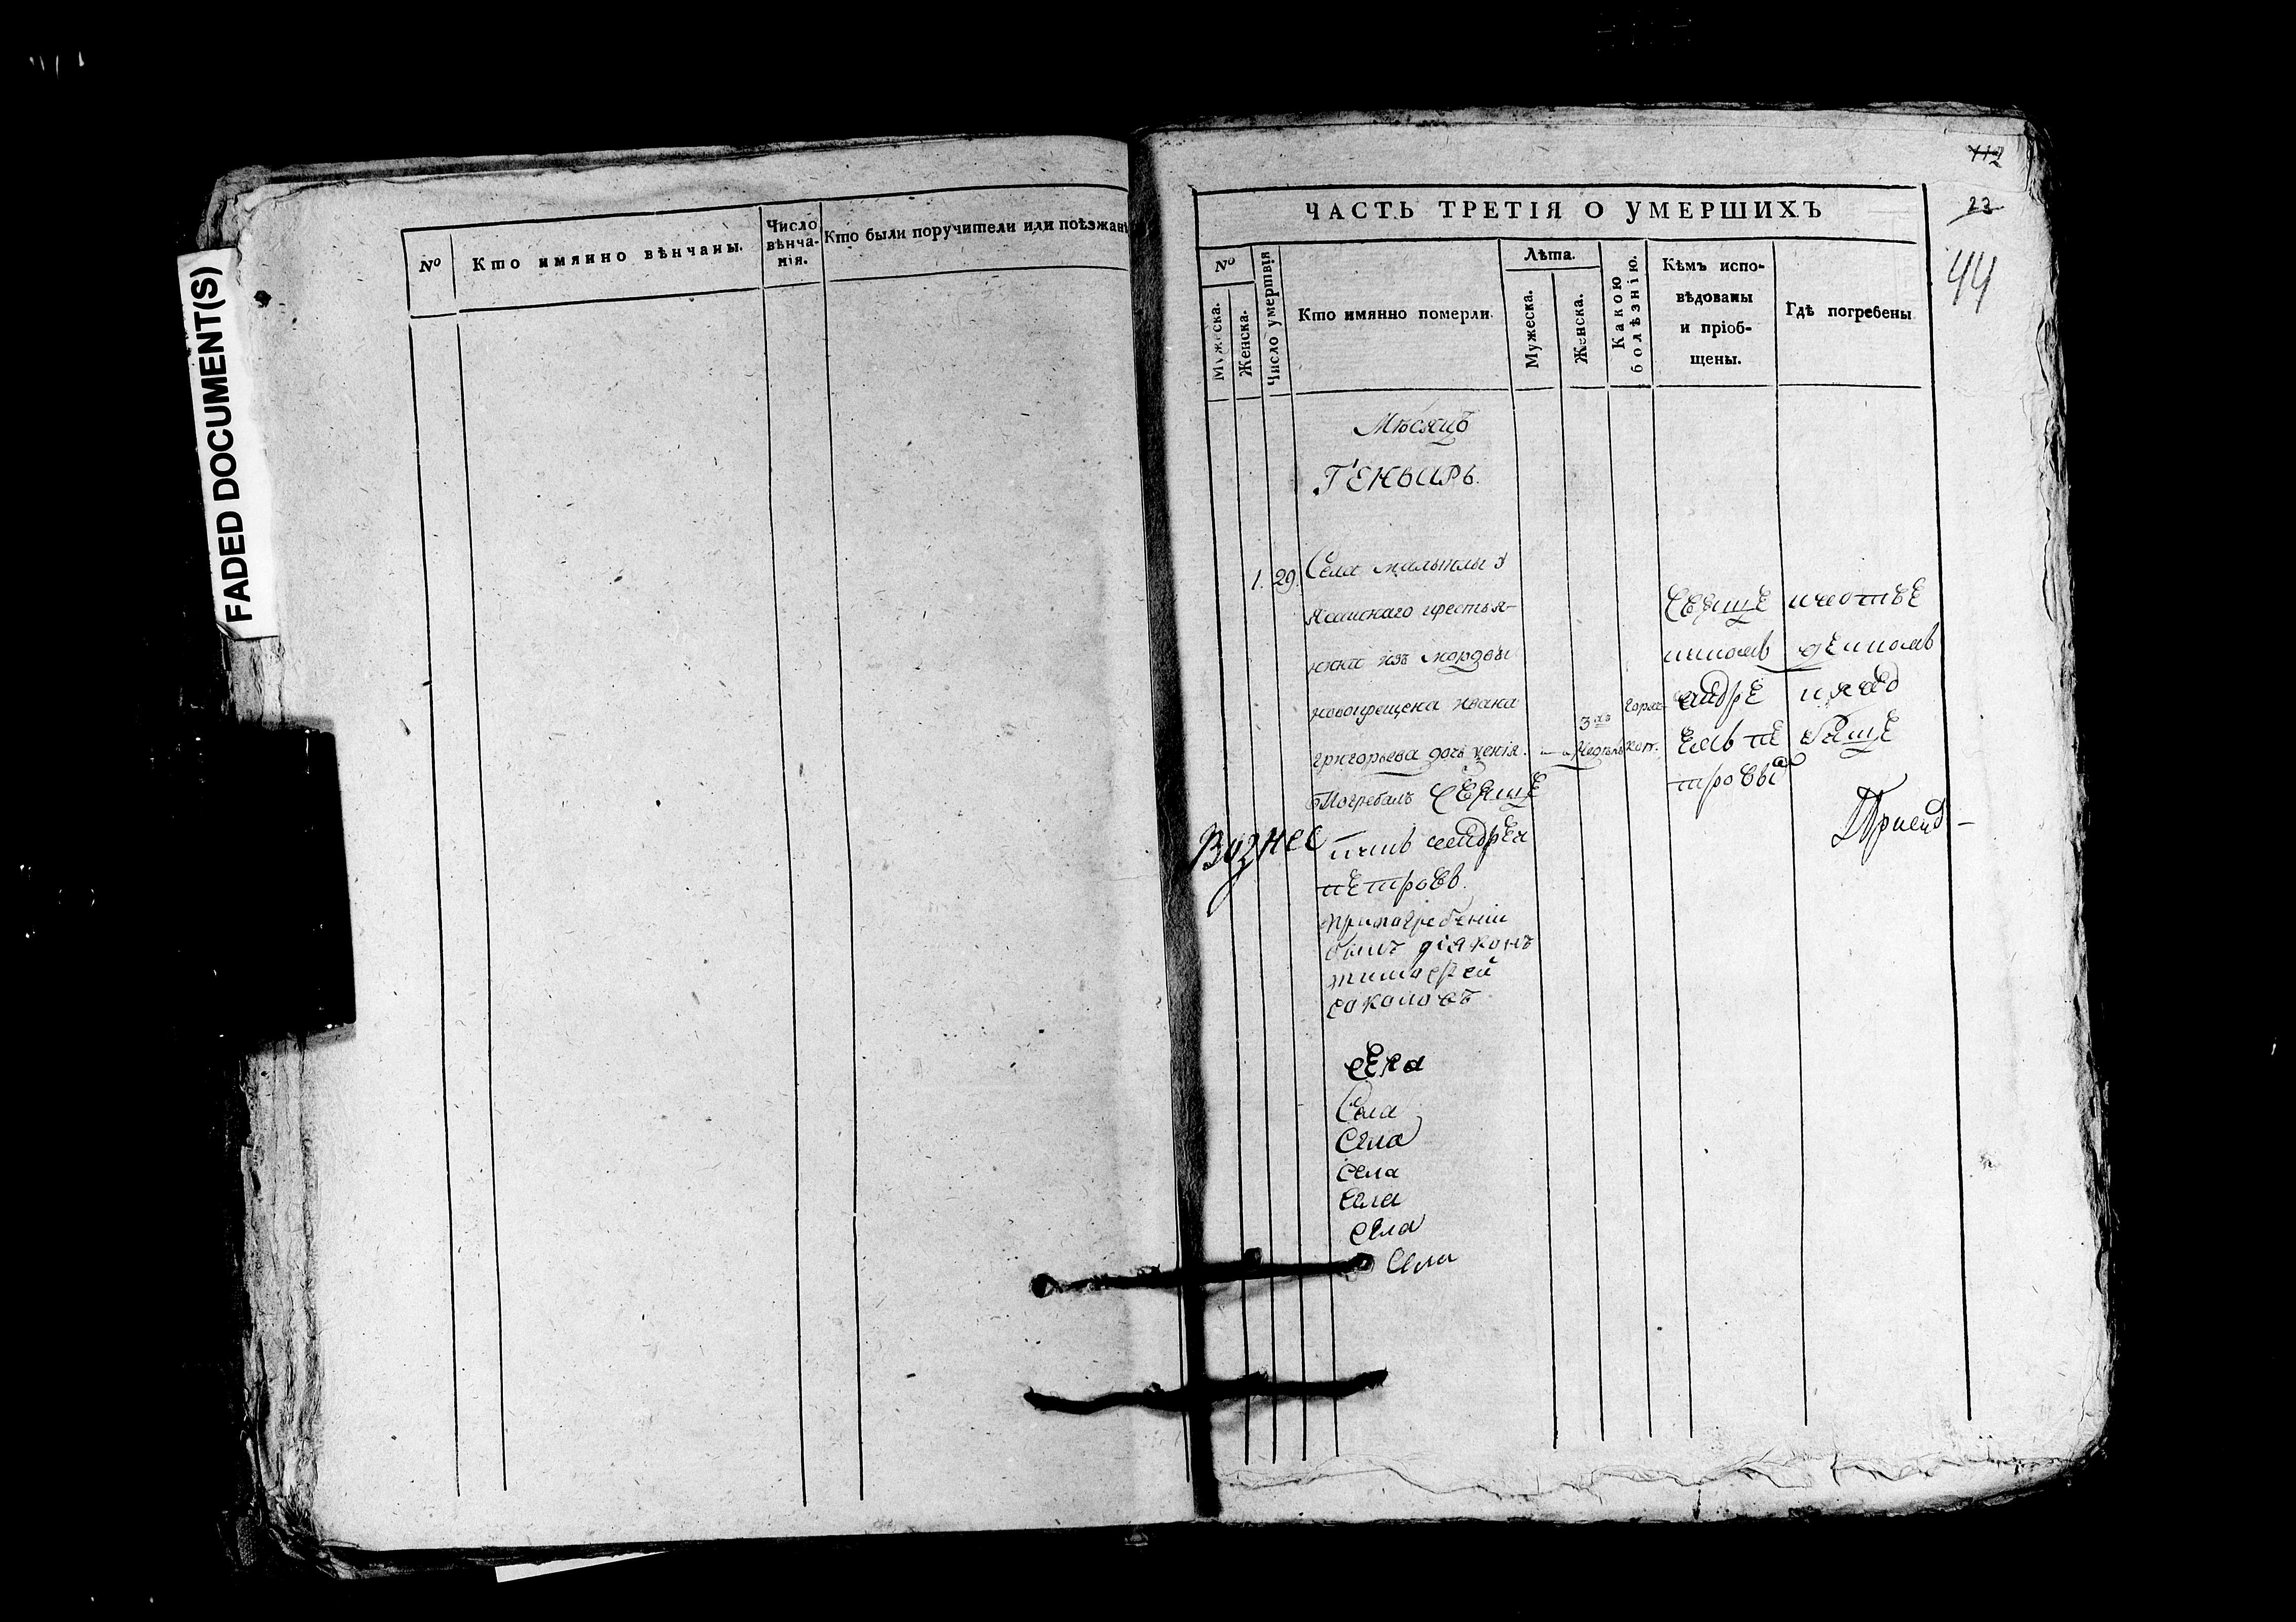 FADED DOCUMENT(S)
№
Кто имянно вѣнчаны.
Число
вѣнча-
нія.
Кто были поручители или поѣзжан
112
23
44
ЧАСТЬ ТРЕТІЯ О УМЕРШИХЪ
№
Мужеска.
Женска.
Число умертвія
Кто имянно померли.
Лѣта.
Мужеска.
Женска.
Какою
болѣзнію.
Кѣмъ испо-
вѣдованы
и пріоб-
щены.
Гдѣ погребены
Мѣсяцъ
Генварь.
1. 29. Села
Ясашнаго крестья-
нина изъ мордвы
новокрещена Ивана
Григорьева дочь
3хъ
недель
горяч-
кот.
Погребалъ свяще
нникъ андреи
петровъ.
при погребении
былъ діяконъ
тимофей
соколовъ
свяще
нникомъ
андре
емъ пе
тровы
Вознес
села
Села
Села
села
села
села
Села